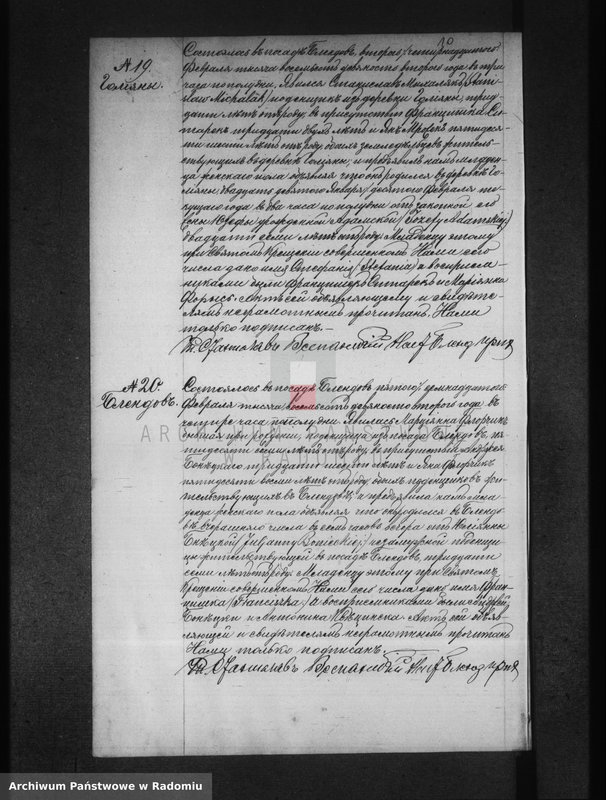 № 19.
Голяны.
Состоялось въ посадѣ Блендовъ, второго / четырнадцатого
Февраля тысяча восемьсотъ девяносто второго года въ три
часа пополудни. Явился Станиславъ Михалякъ (Stani-
sław Michalak) поденщикъ изъ деревни Голяны, трид-
цати лѣтъ отъ роду, въ присутствіи Францишка
тридцати двухъ лѣтъ и пятидеся-
ти шести лѣтъ отъ роду, обоихъ земледѣльцевъ житель-
ствующихъ въ деревнѣ Голяны; и предъявилъ намъ младен-
ца женского пола объявляя что онъ родился въ деревнѣ Го-
ляны двадцать девятого Января / десятого Февраля те-
кущаго года въ два часа пополудни отъ законной его
жены Юзефы урожденной Адамской (Józefy Adamskiej)
двадцати семи лѣтъ отъ роду. Младенцу этому
при Святомъ Крещеніи совершенномъ Нами сего
числа дано имя Стефанія (Stefania) а воспріем-
никами были Францишекъ и Маріянна
Актъ сей объявляющему и свидѣте-
лямъ неграмотнымъ прочитанъ, Нами
только подписанъ.
№ 20.
Блендовъ.
Состоялось въ посадѣ Блендовъ пятого / семнадцатого
Февраля тысяча восемьсотъ девяносто второго года въ
четыре часа пополудни. Явилась Маріянна
бывшая при рожденіи, поденщица изъ посада Блендовъ, пя-
тидесяти семи лѣтъ отъ роду, въ присутствіи Андрея
тридцати шести лѣтъ и Яна
пятидесяти восьми лѣтъ отъ роду, обоихъ поденщиковъ жи-
тельствующихъ въ Блендовѣ; и предъявила намъ мла-
денца женского пола объявляя что онъ родился въ Блендо-
вѣ вчерашняго числа въ семь часовъ вечера отъ Юліянны
незамужной поденщи-
цы жительствующей въ посадѣ Блендовъ, тридцати
семи лѣтъ отъ роду. Младенцу этому при Святомъ
Крещеніи совершенномъ Нами сего числа дано имя Фран-
цишка (Franciszka) а воспріемниками были Андрей
и Антонина Актъ сей объяв-
ляющей и свидѣтелямъ неграмотнымъ прочитанъ
Нами только подписанъ.
ARCHIWUM PAŃSTWOWE
W RADOMIU
Archiwum Państwowe w Radomiu